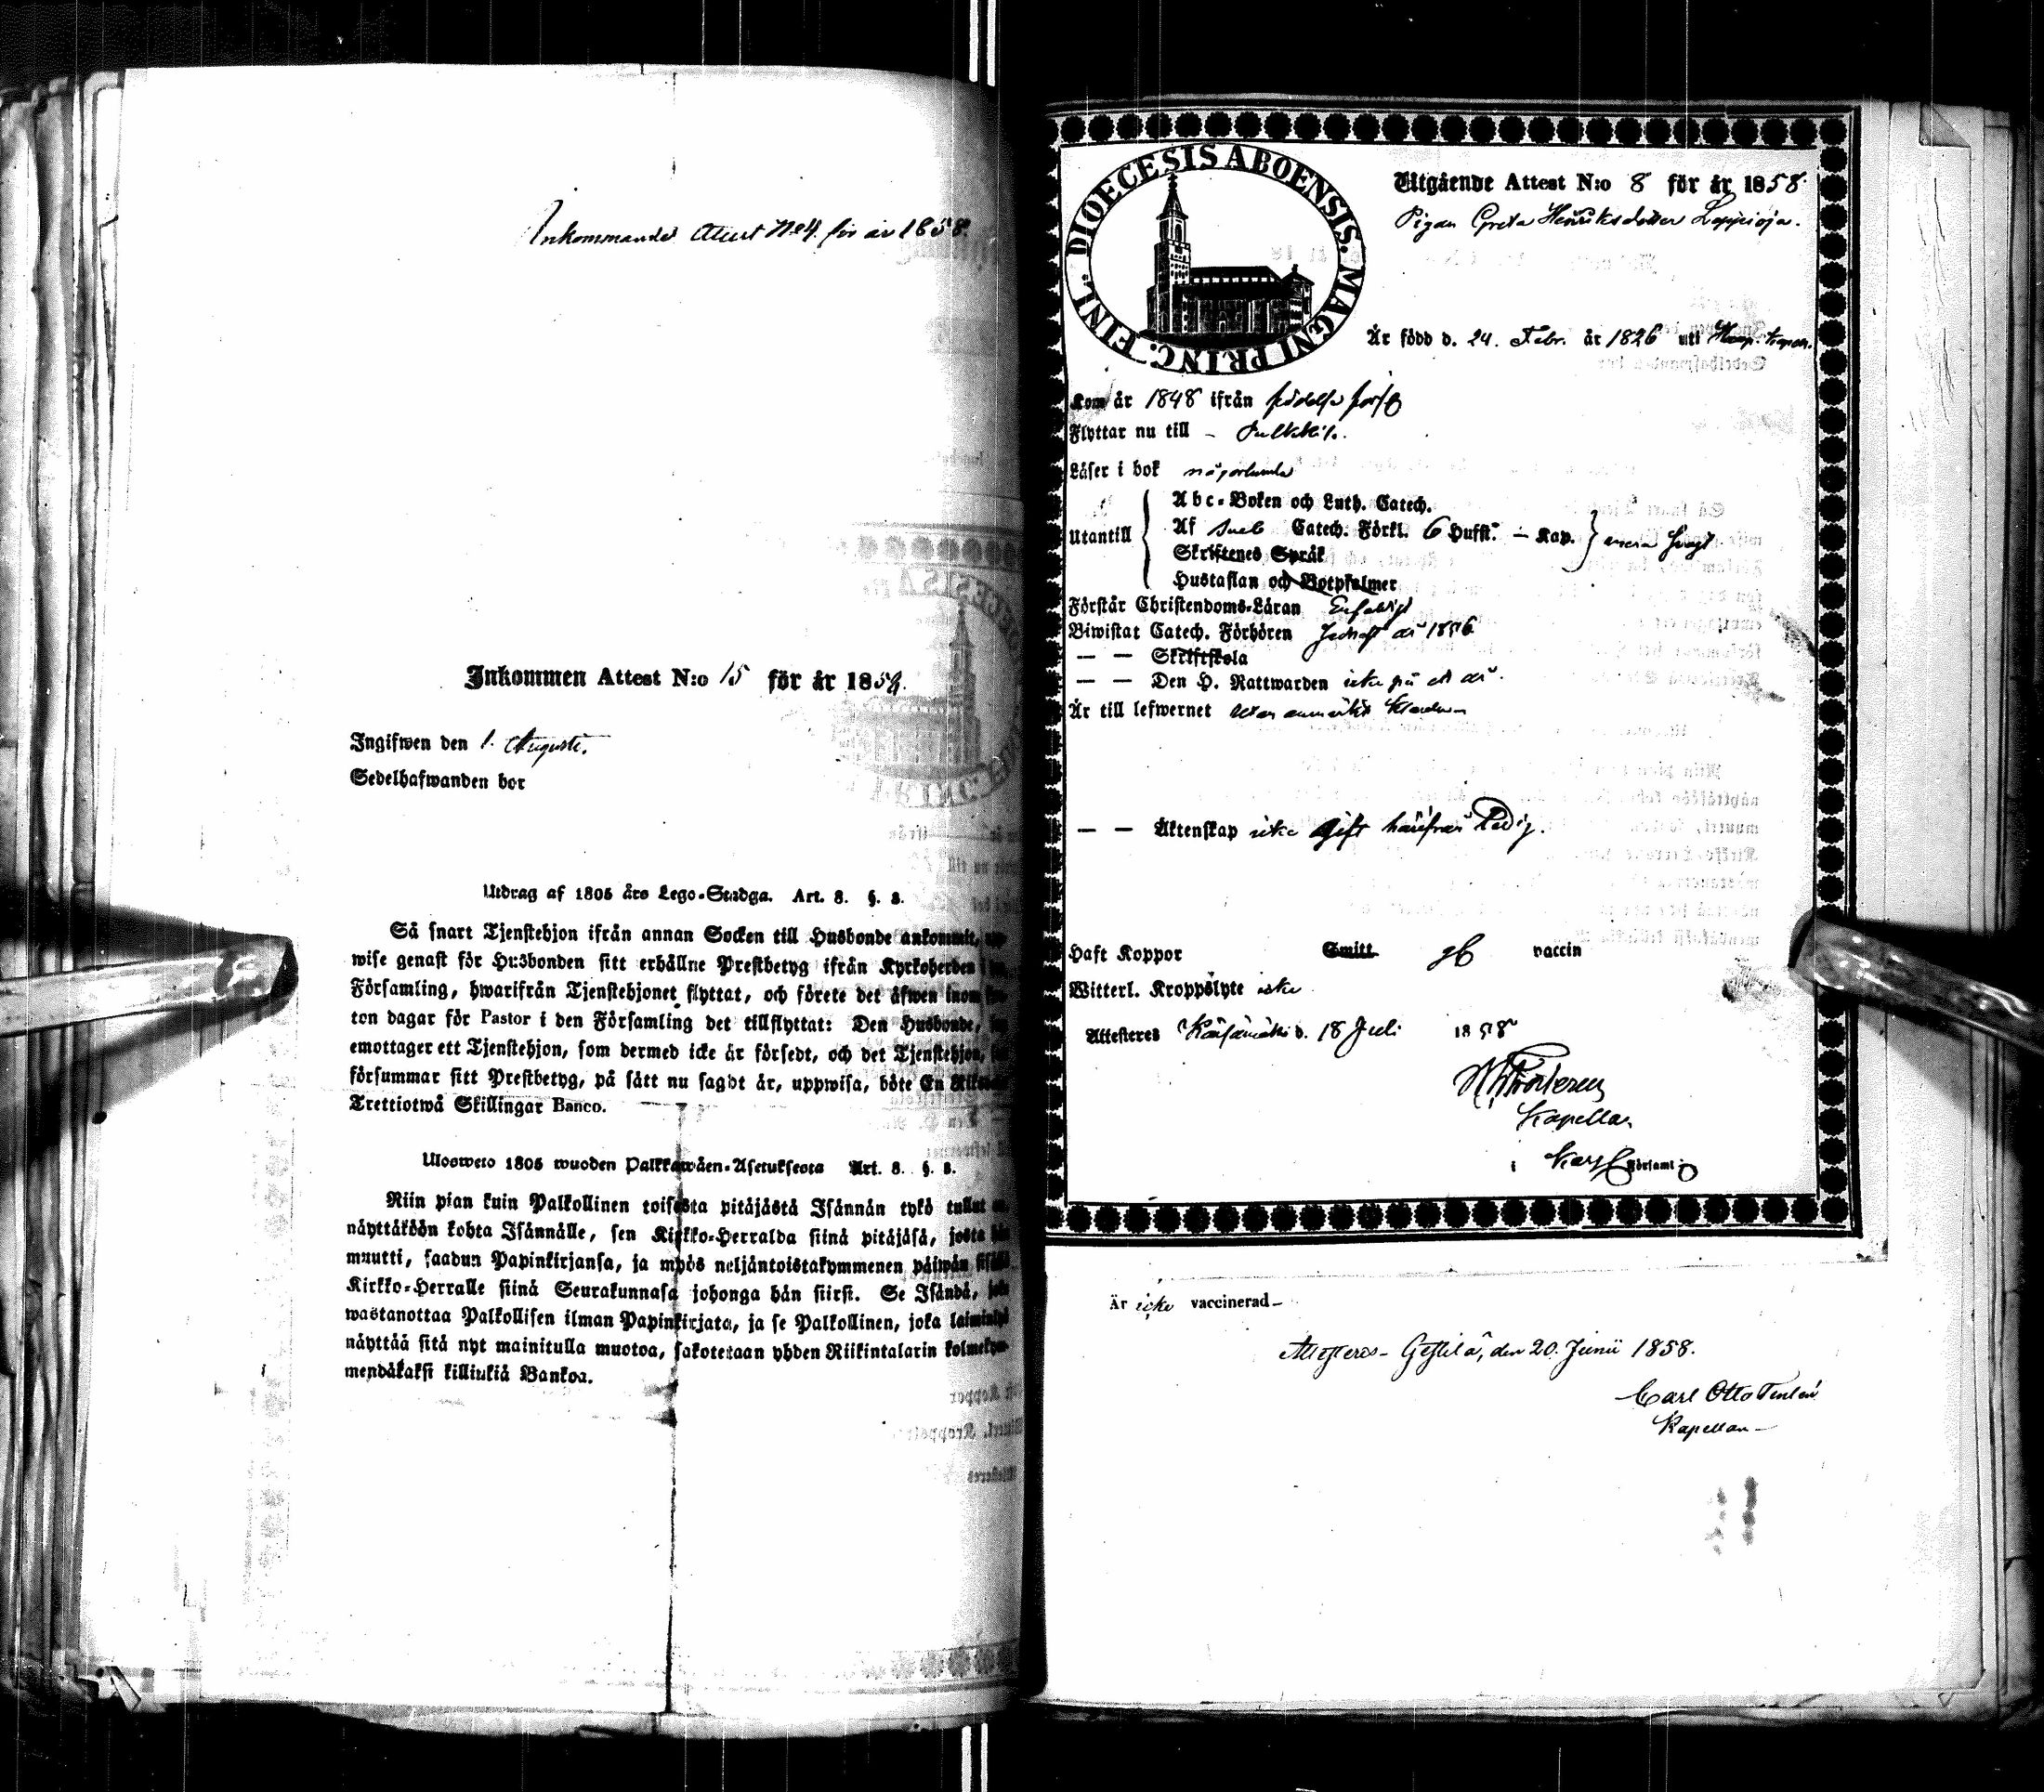 Inkommande Attest No 4. för år 1858.
Inkommen Attest N:o 15 för år 1858.
Ingifwen den 1. Augusti.
Sedelhafwanden bor
Utdrag af 1805 års Lego-Stadga. Art. 8. §. 8.
Så snart Tjenstehjon ifrån annan Socken till Husbonde ankommit,
wise genast för Husbonden sitt erhållne Prestbetyg ifrån Kyrkoherden
Församling, hwarifrån Tjenstehjonet flyttat, och förete det äfwen inom
ton dagar för Pastor i den Församling det tillflyttat: Den Husbonde,
emottager ett Tjenstehjon, som dermed icke är försedt, och det Tjenstehjon,
försummar sitt Prestbetyg, på sätt nu sagdt är, uppwisa, böte En
Trettiotwå Skillingar Banco.
Ulosweto 1805 wuoden Palkkawäen-Asetuksesta Art. 8. §. 8.
Niin pian kuin Palkollinen toisesta pitäjästä Isännän tykö tullut
näyttäköön kohta Isännälle, sen Kirkko-Herralda siinä pitäjäsä, josta
muutti, saadun Papinkirjansa, ja myös neljäntoistakymmenen päiwän
Kirkko-Herralle siinä Seurakunnasa johonga hän siirsi. Se Isändä,
wastanottaa Palkollisen ilman Papinkirjata, ja se Palkollinen, joka
näyttää sitä nyt mainitulla muotoa, sakotetaan yhden Riikintalarin kolmekym-
mendäkaksi killinkiä Bankoa.
DIOECESIS ABOENSIS. MAGNI PRINC. FINL.
Utgående Attest N:o 8 för år 1858.
Pigan Greta Henriksdotter Leppioja.
Är född d. 24. Febr. år 1826 uti
Kom år 1848 ifrån födelse
Flyttar nu till - Pulkkila.
Läser i bok någorlunda
Utantill
Abc-Boken och Luth. Catech.
Af Sveb Catech. Förkl. 6 Hufst. - Kap.
Skriftenes Språk
Hustaflan och Botpsalmer
Förstår Christendoms-Läran Enfaldigt
Biwistat Catech. Förhören år 1856
— — Skriftskola
— — Den H. Nattwarden icke på ett år.
Är till lefwernet utan
— — Äktenskap icke gift härifrån Ledig.
Haft Koppor Smitt vaccin
Witterl. Kroppslyte icke
Attesteres Kärsämäki d. 18 Juli 1858
Kapellan
i Församl.
Är icke vaccinerad -
Attesteres - Gestilä, den 20. Junii 1858.
Carl Otto
Kapellan -